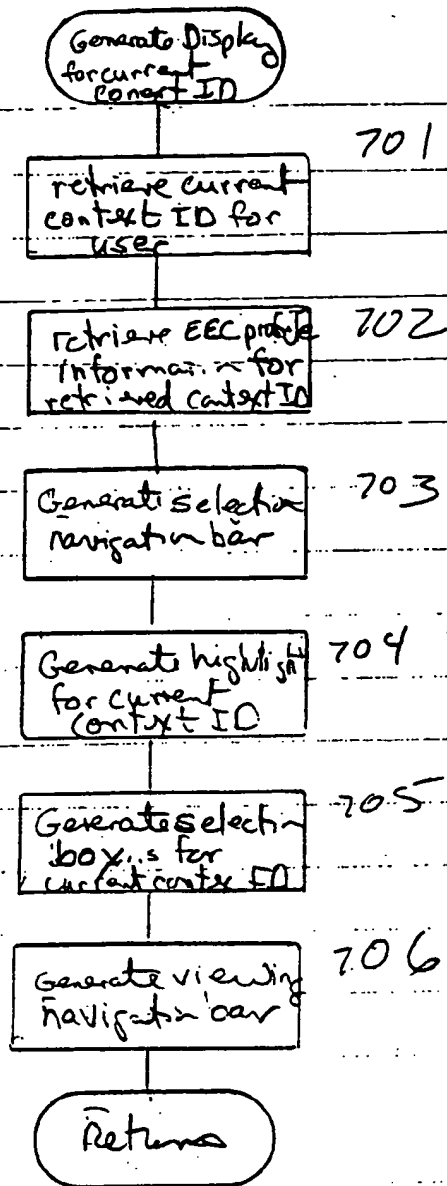 Generate Display
for current
context ID
701
retrieve current
context ID for
user
702
retrieve EEC profile
information for
retrieved context ID
703
Generate selection
navigation bar
704
Generate highlight
for current
context ID
705
Generate selection
boxes for
current context ID
706
Generate viewing
navigation bar
Return